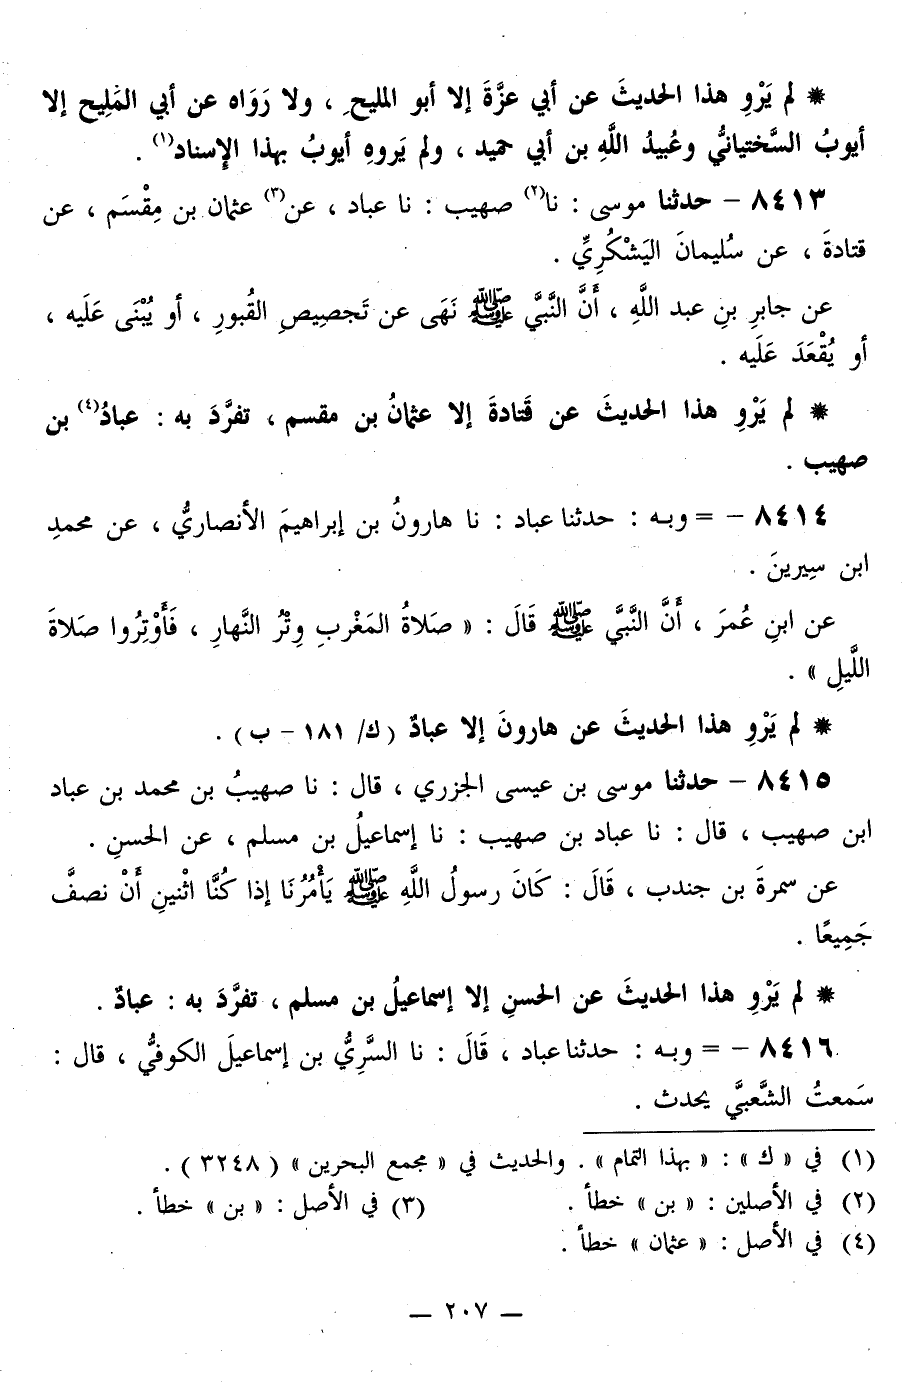 * لم يَرْوِ هذا الحديثَ عن أبي عزَّةَ إلا أبو المليحِ ، ولا رَوَاه عن أبي المَلِيح إلا
أيوبُ السَّختيانيُّ وعُبيدُ اللَّهِ بن أبي حميد ، ولم يَروهِ أيوبُ بهذا الإسناد(١) .
٨٤١٣ – حدثنا موسى : نا(٢) صهيب : نا عباد ، عن(٣) عثمان بن مِقْسَم ، عن
قتادةَ ، عن سُليمانَ اليَشْكُرِيِّ .
عن جابرِ بنِ عبد اللَّهِ ، أَنَّ النَّبيَّ ﷺ نَهَى عن تَجصِيصِ القُبورِ ، أو يُبْنَى عَلَيه ،
أو يُقْعَدَ عَلَيه .
* لم يَرْوِ هذا الحديثَ عن قَتادةَ إلا عثمانُ بن مقسم ، تفرَّدَ به : عبادُ(٤) بن
صهيب .
٨٤١٤ – = وبـه : حدثنا عباد : نا هارونُ بن إبراهيمَ الأنصاريُّ ، عن محمدِ
ابن سِيرينَ .
عن ابنِ عُمرَ ، أَنَّ النَّبيَّ ﷺ قَالَ : « صَلاةُ المَغْربِ وِتْرُ النَّهارِ ، فَأَوْتِرُوا صَلاةَ
اللَّيلِ » .
* لم يَرْوِ هذا الحديثَ عن هارونَ إلا عبادٌ ( ك/ ١٨١ – ب ) .
٨٤١٥ – حدثنا موسى بن عيسى الجزري ، قال : نا صهيبُ بن محمد بن عباد
ابن صهيب ، قال : نا عباد بن صهيب : نا إسماعيلُ بن مسلم ، عن الحسنِ .
عن سمرةَ بن جندب ، قَالَ : كَانَ رسولُ اللَّهِ ﷺ يَأْمُرُنَا إذا كُنَّا اثْنينِ أَنْ نصفَّ
جَمِيعًا .
* لم يَرْوِ هذا الحديثَ عن الحسنِ إلا إسماعيلُ بن مسلم ، تفرَّدَ به : عبادٌ .
٨٤١٦ – = وبـه : حدثنا عباد ، قَالَ : نا السَّرِيُّ بن إسماعيلَ الكوفيُّ ، قال :
سَمعتُ الشَّعبيَّ يحدث .
(١) في « ك » : « بهذا التمام » . والحديث في « مجمع البحرين » ( ٣٢٤٨ ) .
(٢) في الأصلين : « بن » خطأ . (٣) في الأصل : « بن » خطأ .
(٤) في الأصل : « عثمان » خطأ .
— ٢٠٧ —